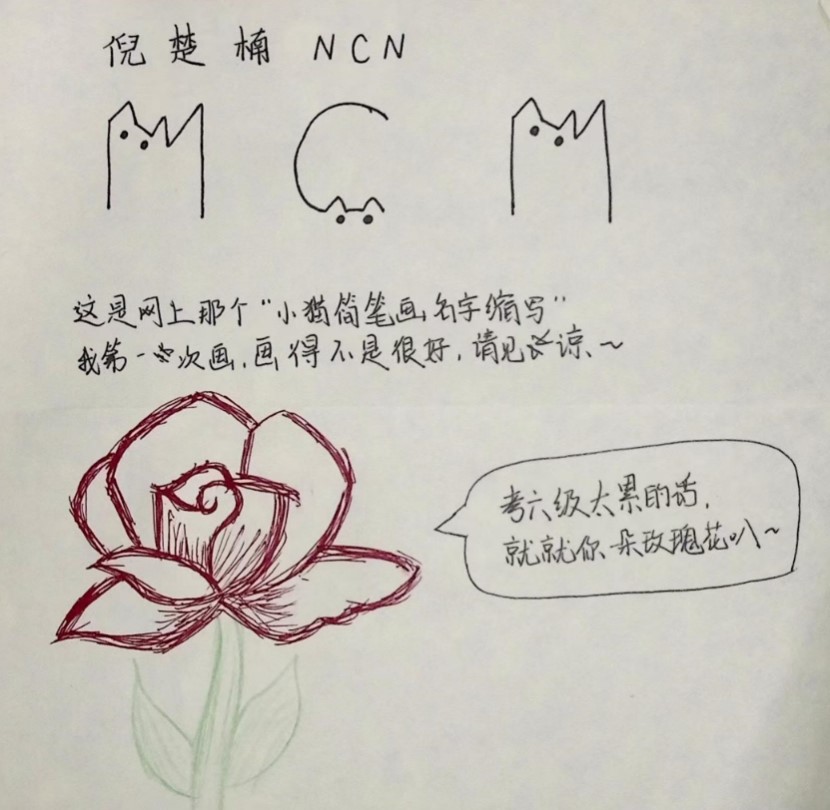 倪楚楠 NCN
这是网上那个“小猫简笔画名字缩写”
我第一次画,画得不是很好,请见谅、~
考六级太累的话,
就就你一朵玫瑰花叭~